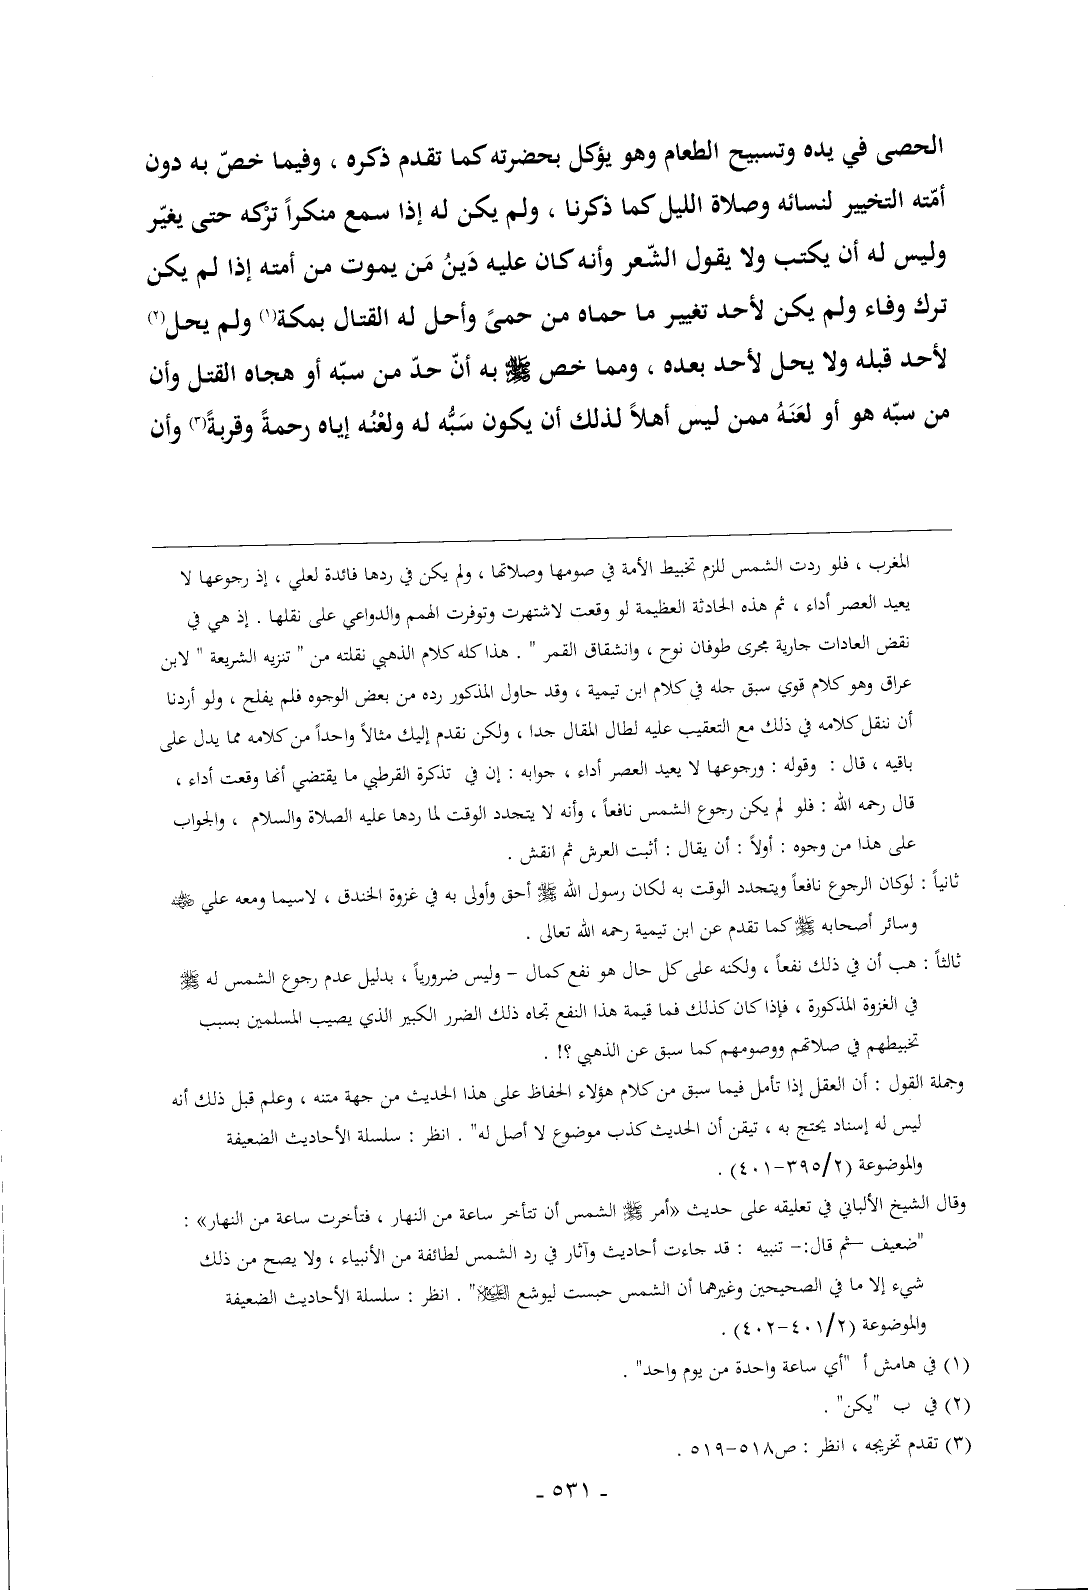 الحصى في يده وتسبيح الطعام وهو يؤكل بحضرته كما تقدم ذكره ، وفيما خصّ به دون
أمّته التخيير لنسائه وصلاة الليل كما ذكرنا ، ولم يكن له إذا سمع منكراً ترْكه حتى يغيّر
وليس له أن يكتب ولا يقول الشّعر وأنه كان عليه دَينُ مَن يموت من أمته إذا لم يكن
ترك وفاء ولم يكن لأحد تغيير ما حماه من حمىً وأحل له القتال بمكة(١) ولم يحل(٢)
لأحد قبله ولا يحل لأحد بعده ، ومما خص ﷺ به أنّ حدّ من سبّه أو هجاه القتل وأن
من سبّه هو أو لعَنَهُ ممن ليس أهلاً لذلك أن يكون سَبُّه له ولعْنُه إياه رحمةً وقربةً(٣) وأن
المغرب ، فلو ردت الشمس للزم تخبيط الأمة في صومها وصلاتها ، ولم يكن في ردها فائدة لعلي ، إذ رجوعها لا
يعيد العصر أداء ، ثم هذه الحادثة العظيمة لو وقعت لاشتهرت وتوفرت الهمم والدواعي على نقلها . إذ هي في
نقض العادات جارية مجرى طوفان نوح ، وانشقاق القمر " . هذا كله كلام الذهبي نقلته من " تنزيه الشريعة " لابن
عراق وهو كلام قوي سبق جله في كلام ابن تيمية ، وقد حاول المذكور رده من بعض الوجوه فلم يفلح ، ولو أردنا
أن ننقل كلامه في ذلك مع التعقيب عليه لطال المقال جدا ، ولكن نقدم إليك مثالاً واحداً من كلامه مما يدل على
باقيه ، قال : وقوله : ورجوعها لا يعيد العصر أداء ، جوابه : إن في تذكرة القرطبي ما يقتضي أنها وقعت أداء ،
قال رحمه الله : فلو لم يكن رجوع الشمس نافعاً ، وأنه لا يتجدد الوقت لما ردها عليه الصلاة والسلام ، والجواب
على هذا من وجوه : أولاً : أن يقال : أثبت العرش ثم انقش .
ثانياً : لوكان الرجوع نافعاً ويتجدد الوقت به لكان رسول الله ﷺ أحق وأولى به في غزوة الخندق ، لاسيما ومعه علي ﵁
وسائر أصحابه ﷺ كما تقدم عن ابن تيمية رحمه الله تعالى .
ثالثاً : هب أن في ذلك نفعاً ، ولكنه على كل حال هو نفع كمال – وليس ضرورياً ، بدليل عدم رجوع الشمس له ﷺ
في الغزوة المذكورة ، فإذا كان كذلك فما قيمة هذا النفع تجاه ذلك الضرر الكبير الذي يصيب المسلمين بسبب
تخبيطهم في صلاتهم ووصومهم كما سبق عن الذهبي ؟! .
وجملة القول : أن العقل إذا تأمل فيما سبق من كلام هؤلاء الحفاظ على هذا الحديث من جهة متنه ، وعلم قبل ذلك أنه
ليس له إسناد يحتج به ، تيقن أن الحديث كذب موضوع لا أصل له" . انظر : سلسلة الأحاديث الضعيفة
والموضوعة (٣٩٥/٢–٤٠١) .
وقال الشيخ الألباني في تعليقه على حديث «أمر ﷺ الشمس أن تتأخر ساعة من النهار ، فتأخرت ساعة من النهار» :
"ضعيف – ثم قال:– تنبيه : قد جاءت أحاديث وآثار في رد الشمس لطائفة من الأنبياء ، ولا يصح من ذلك
شيء إلا ما في الصحيحين وغيرهما أن الشمس حبست ليوشع ﵇" . انظر : سلسلة الأحاديث الضعيفة
والموضوعة (٤٠١/٢–٤٠٢) .
(١) في هامش أ "أي ساعة واحدة من يوم واحد" .
(٢) في ب "يكن" .
(٣) تقدم تخريجه ، انظر : ص٥١٨–٥١٩ .
- ٥٣١ -